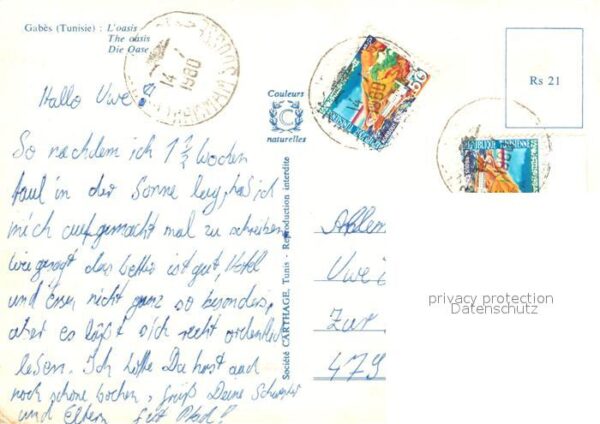 Gabès (Tunisie) : L'oasis
The oasis
Die Oase
14 7 1980
14 1980
1980
RÉPUBLIQUE TUNISIENNE
Rs 21
Couleurs
C
naturelles
Société CARTHAGE, Tunis - Reproduction interdite
Hallo Uwe!
So nachdem ich 1 1/2 Wochen
faul in der Sonne lag, hab ich
mich aufgemacht mal zu schreiben
Wie gesagt das Wetter ist gut, Hotel
und Essen nicht ganz so besonders,
aber es läßt sich recht ordentlich
leben. Ich hoffe Du hast auch
noch schöne Wochen, grüß Deine Schwester
und Eltern
Uwe
Zur
479
privacy protection
Datenschutz